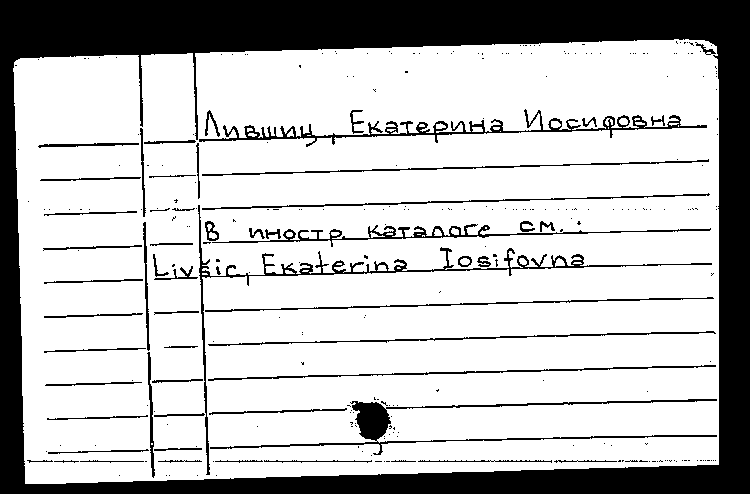 Лившиц, Екатерина Иосифовна
В иностр. каталоге см.:
Livšic, Ekaterina Iosifovna